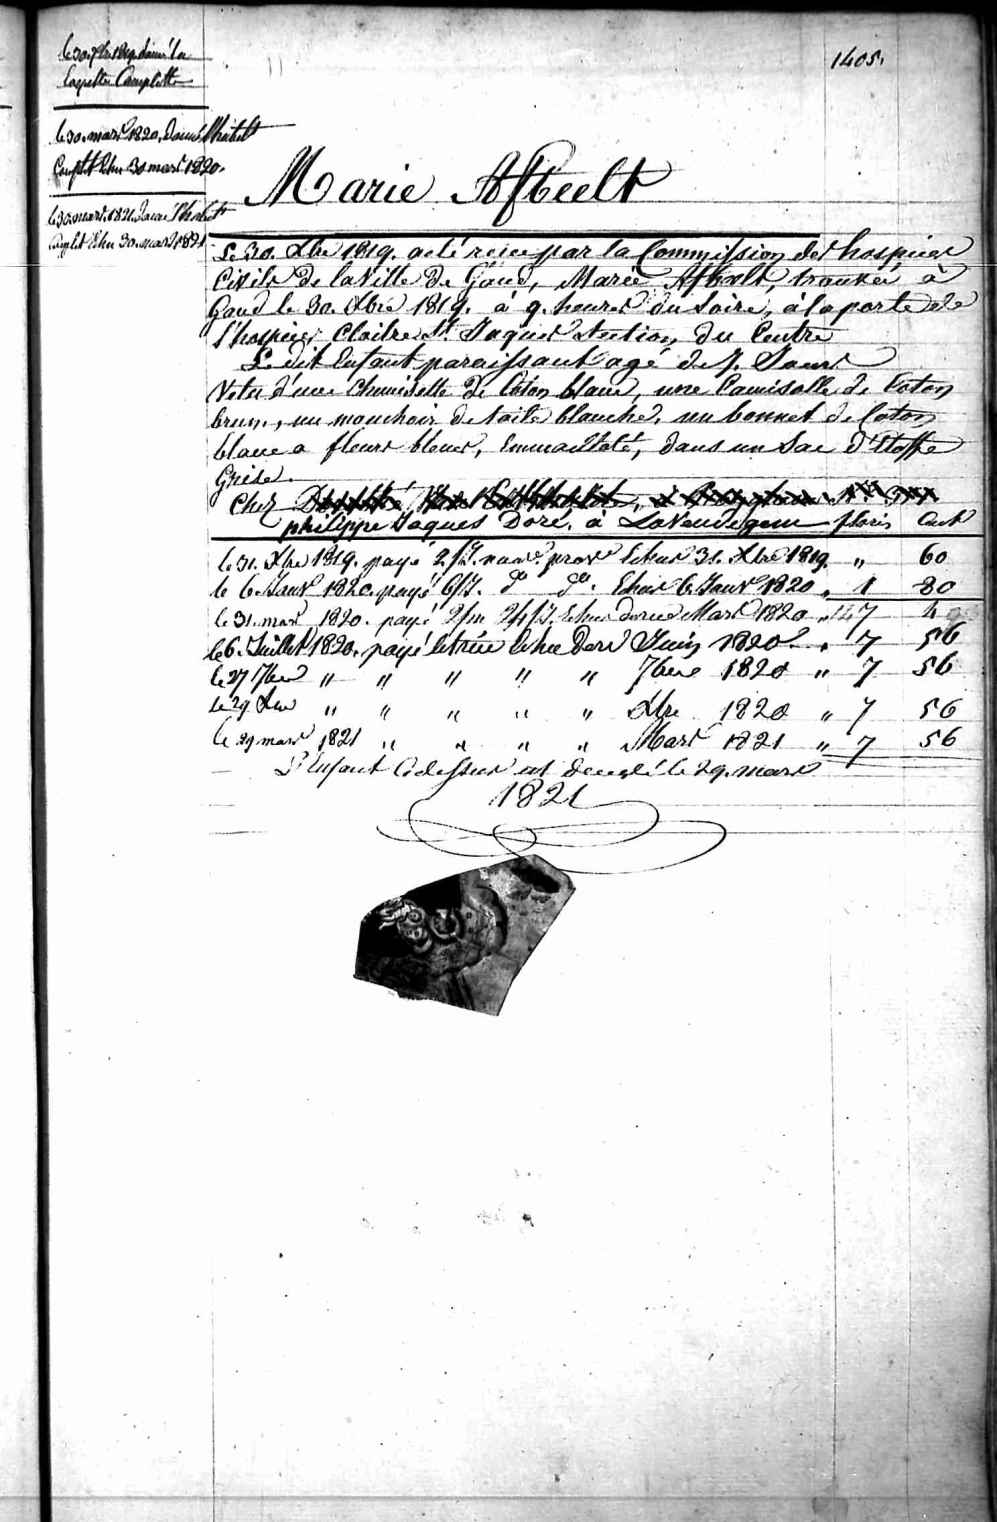 1405.
le 30. Xbre 1819. donné la
Layette Complette
le 30. mars 1820. donné l'habit
Complt Echu 30 mars 1820.
le 30. mars. 1821. donné l'habit
Complet Echu 30. mars 1821
Marie Afbeelt
Le 30. Xbre 1819. a eté recue par la Commission des hospices
Civils de la Ville de Gand, Marie Afbeelt, trouvée à
Gand le 30. Xbre 1819. à 9. heures du Soire, à la porte de
l'hospice Cloitre St. Jaques Section du Centre
Le dit Enfant paraissant agé de 7. Jours
Vetu d'une Chemisette de Coton blanc, une Camisolle de Coton
brun, un mouchoir de toile blanche, un bonnet de Coton
blanc a fleurs bleues, Emmailloté, dans un Sac d'Etoffe
Grise.
Chez
philippe Jaques Doré, à florin Cent
le 31. Xbre 1819. payé 2/J. Echus 31. Xbre 1819. „ 60
le 6. Janr 1820. payé 6/J. do do. Echus 6. Janr 1820 „ 1 80
le 31. mars 1820. payé 2/m 24/J. Echus Mars 1820 „ 7
le 6. Juillet 1820. payé le trice Echu Juin 1820 „ 7 56
le 27 7bre „ „ „ „ „ 7bre 1820 „ 7 56
le 29 Xbre „ „ „ „ „ Xbre 1820 „ 7 56
le 29 mars 1821 „ „ „ „ Mars 1821 „ 7 56
L'Enfant Cidessus est decedé le 29. mars
1821